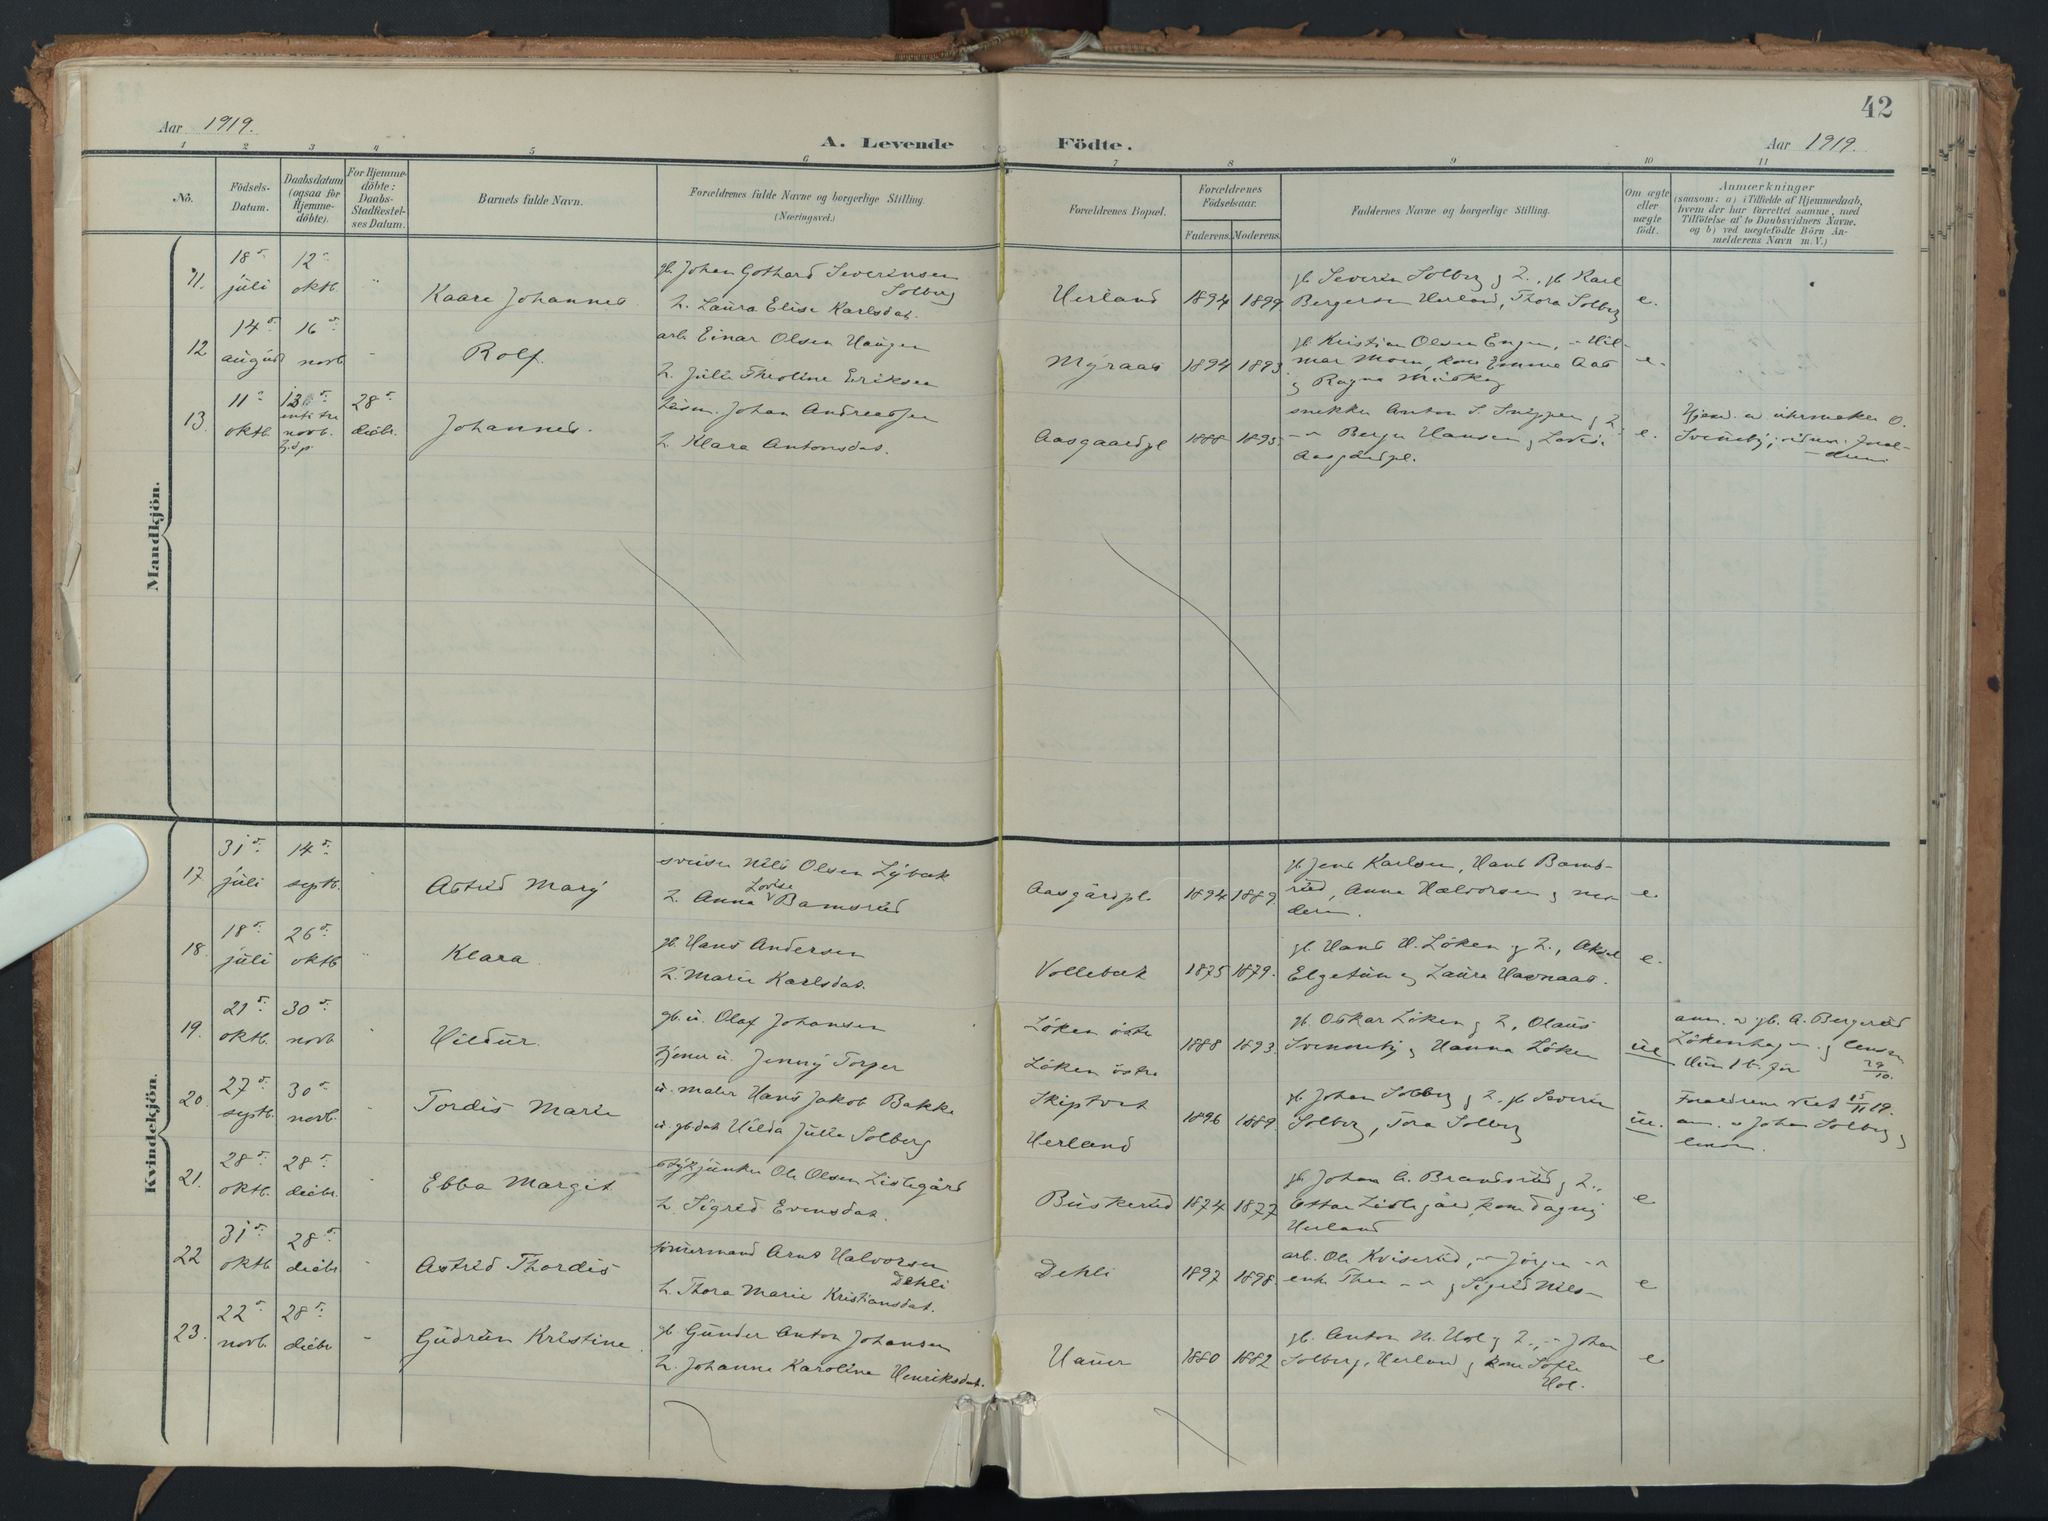 42
Aar 1919.
A. Levende Födte.
Aar 1919.
1 2 3 4 5 6 7 8 9 10 11
No.
Födsels-
Datum.
Daabsdatum
(ogsaa for
Hjemme-
döbte).
For Hjemme-
döbte:
Daabs-
Stadfæstel-
ses Datum.
Barnets fulde Navn.
Forældrenes fulde Navne og borgerlige Stilling.
(Næringsvei.)
Forældrenes Bopæl.
Forældrenes
Födselsaar.
Faderens. Moderens.
Faddernes Navne og borgerlige Stilling.
Om ægte
eller
uægte
födt.
Anmærkninger
(saasom: a) i Tilfælde af Hjemmedaab,
hvem der har forrettet samme, med
Tilföielse af to Daabsvidners Navne.
og b) ved uægtefödte Börn An-
melderens Navn m. V.)
Mandkjön.
11.
18
juli
12
oktb.
Kaare Johannes
gb. Johan Gothard Severinsen
Solberg
h. Laura Elise Karlsdat.
Herland
1894 1899
gb Severin Solberg og h., gb Karl
Bergersen Herland, Thora Solberg
e.
12
14
august
16
novb.
Rolf.
arb. Einar Olsen Haugen
h. Julie Theoline Eriksen
Myraas
1894 1893.
gb. Kristian Olsen Engen, Hil-
mar Moen, kone Emma Aas
og Ragna
e.
13.
11
oktb.
novb.
28
decbr.
Johannes.
Johan Andreassen
h. Klara Antonsdat.
Aasgaardpl
1888 1895
snekker Anton S. og h.
Berger Hansen og
Aasgårdpl.
e.
Hjemd. av uhrmaker O.
Sventeby,
Kvindekjön.
17.
31
juli
14
septb.
Astrid Mary
sveiser Nils Olsen Lybæk
h. Anna Lovise Bamsrud
Aasgårdpl.
1894 1889
gb. Jens Karlsen, Hans Bams-
rud, Anna Halvorsen og mo-
deren.
e
18.
18
juli
26
oktb
Klara
gb. Hans Andersen
h. Marie Karlsdat.
Vollebæk
1875 1879.
gb. Hans H. Løken og h., Aksel
Elgetun og Laura Havnaas.
e.
19.
21
oktb.
30
novb
Hildur.
gb. u. Olaf Johansen
tjener u. Jenny Torper
Løken østre
Løken østre
1888 1893.
gb. Oskar Løken og h, Olaus
Svenneby og Hanna Løken
ue
anm. av gb. A. Bergerud
Løkenhagen og
29/10.
20.
27
septb.
30
novb.
Tordis Marie
u. maler Hans Jakob Bakke
u. gbdat. Hilda Julie Solberg
Skiptvet
Herland
1896 1889.
gb Johan Solberg og h. gb Severin
Solberg, Tora Solberg
ue.
Forældrene viet 15/11 19.
anm. av Johan Solberg og
21.
28
oktb.
28
decbr.
Ebba Margit
Ole Olsen Lislegård
h. Sigrid Evensdat.
Buskerud
1874 1877
gb. Johan A. Brandsrud og h.,
Ottar Lislegård, kone Dagny
Herland
e
22
31
oktb
28
decbr
Astrid Thordis
tømmermand Arnt Halvorsen
Dehli
h. Thora Marie Kristiansdat.
Dehli
1897 1898.
arb. Ole Kviserud, Jørgen
enke Thea og Sigrid Nils-
e
23.
22
novb.
28
decbr
Gudrun Kristine.
gb. Gunder Anton Johansen
h. Johanne Karoline Henriksdat.
Hauer
1880 1882
gb. Anton M. Hol og h., Johan
Solberg, Herland og kone Sofie
Hol.
e